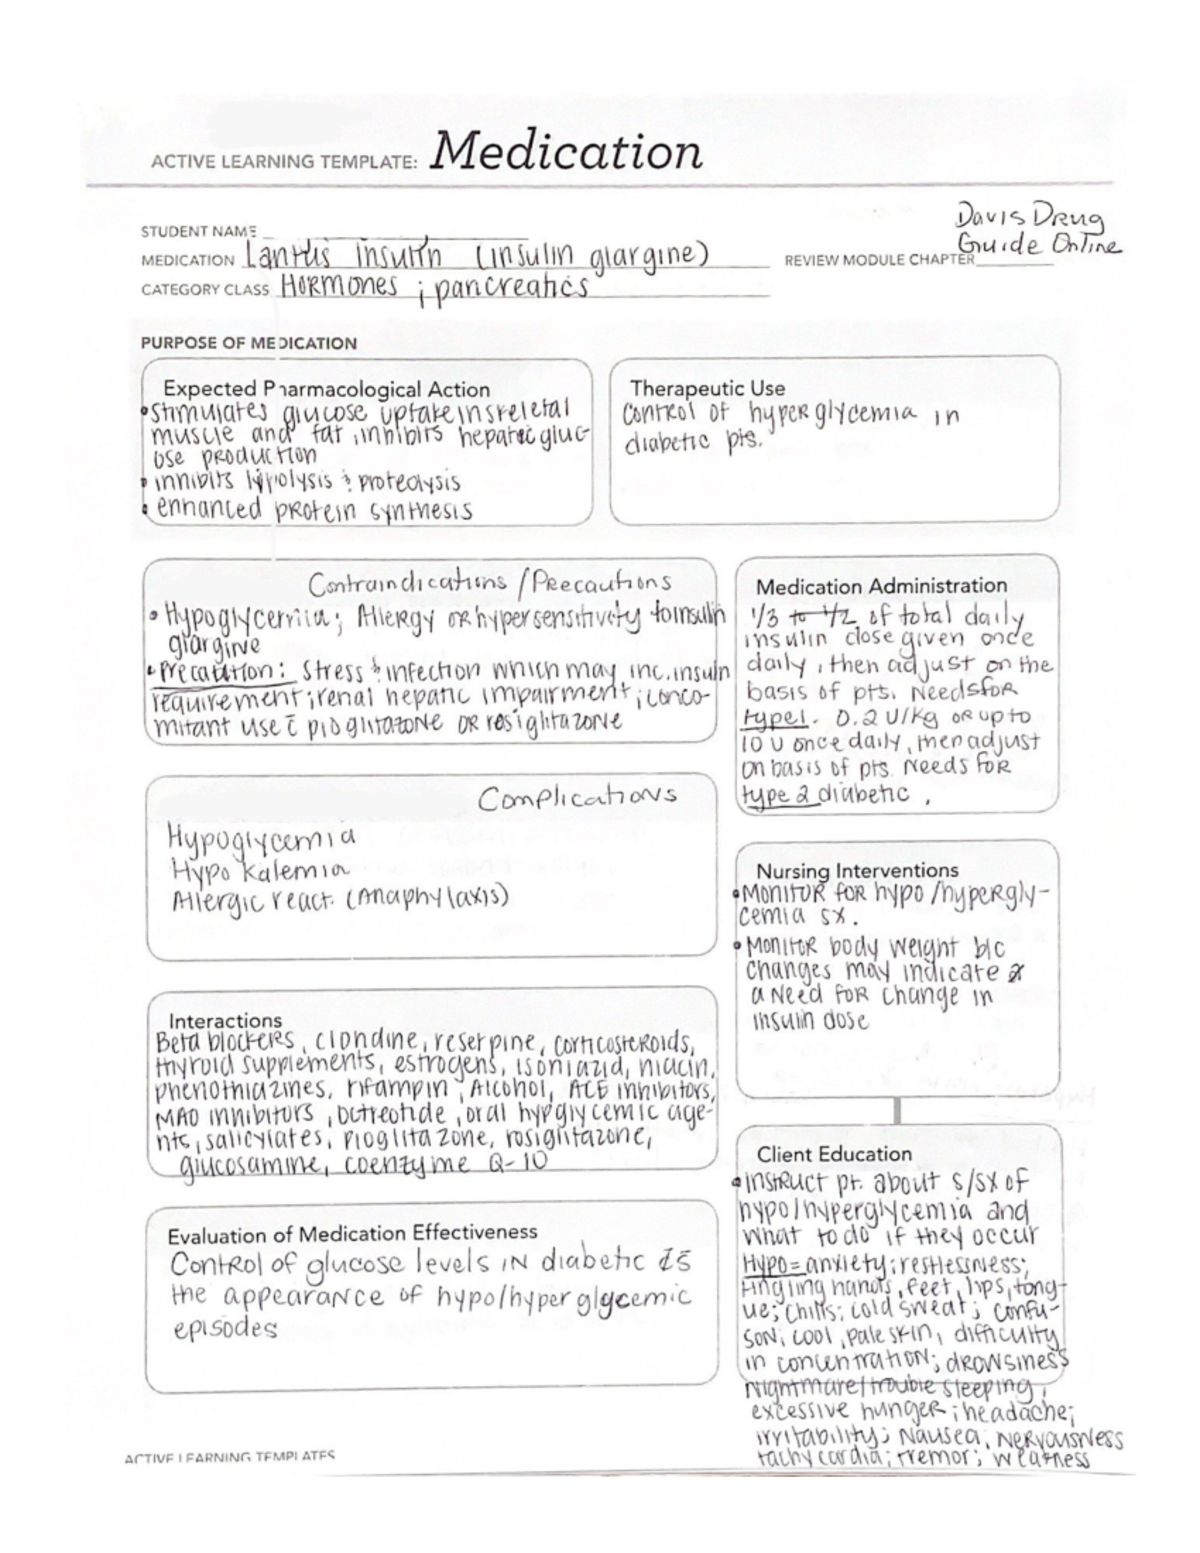 ACTIVE LEARNING TEMPLATE: Medication
Davis Drug
Guide Online
STUDENT NAME
MEDICATION Lantus insulin (insulin glargine)
REVIEW MODULE CHAPTER
CATEGORY CLASS Hormones ; pancreatics
PURPOSE OF MEDICATION
Expected Pharmacological Action
•stimulates glucose uptake in skeletal
muscle and fat, inhibits hepatic gluc-
ose production
• inhibits lypolysis & proteolysis
• enhanced protein synthesis
Therapeutic Use
control of hyperglycemia in
diabetic pts.
Contraindications/Precautions
• Hypoglycemia; Allergy or hypersensitivity to insulin
glargine
• Precaution: Stress & infection which may inc. insulin
requirement; renal hepatic impairment; conco-
mitant use c̄ pioglitazone or rosiglitazone
Medication Administration
1/3 to 1/2 of total daily
insulin dose given once
daily, then adjust on the
basis of pts. needs for
type 1. 0.2 U/kg or up to
10 U once daily, then adjust
on basis of pts. needs for
type 2 diabetic.
Complications
Hypoglycemia
Hypo kalemia
Allergic react. (Anaphylaxis)
Nursing Interventions
• Monitor for hypo/hypergly-
cemia sx.
• Monitor body weight b/c
changes may indicate
a need for change in
insulin dose
Interactions
Beta blockers, clondine, reserpine, corticosteroids,
thyroid supplements, estrogens, isoniazid, niacin,
phenothiazines, rifampin, Alcohol, ACE inhibitors,
MAO inhibitors, octreotide, oral hypglycemic age-
nts, salicylates, pioglitazone, rosiglitazone,
glucosamine, coenzyme Q-10
Client Education
• Instruct pt. about s/sx of
hypo/hyperglycemia and
what to do if they occur
Hypo= anxiety; restlessness;
tingling hands, feet, lips, tong-
ue; chills; cold sweat; confu-
son; cool, pale skin, difficulty
in concentration; drowsiness
nightmare/trouble sleeping;
excessive hunger; headache;
irritability; nausea, nervousness
tachycardia; tremor; weakness
Evaluation of Medication Effectiveness
Control of glucose levels in diabetic is
the appearance of hypo/hyper glycemic
episodes
ACTIVE LEARNING TEMPLATES